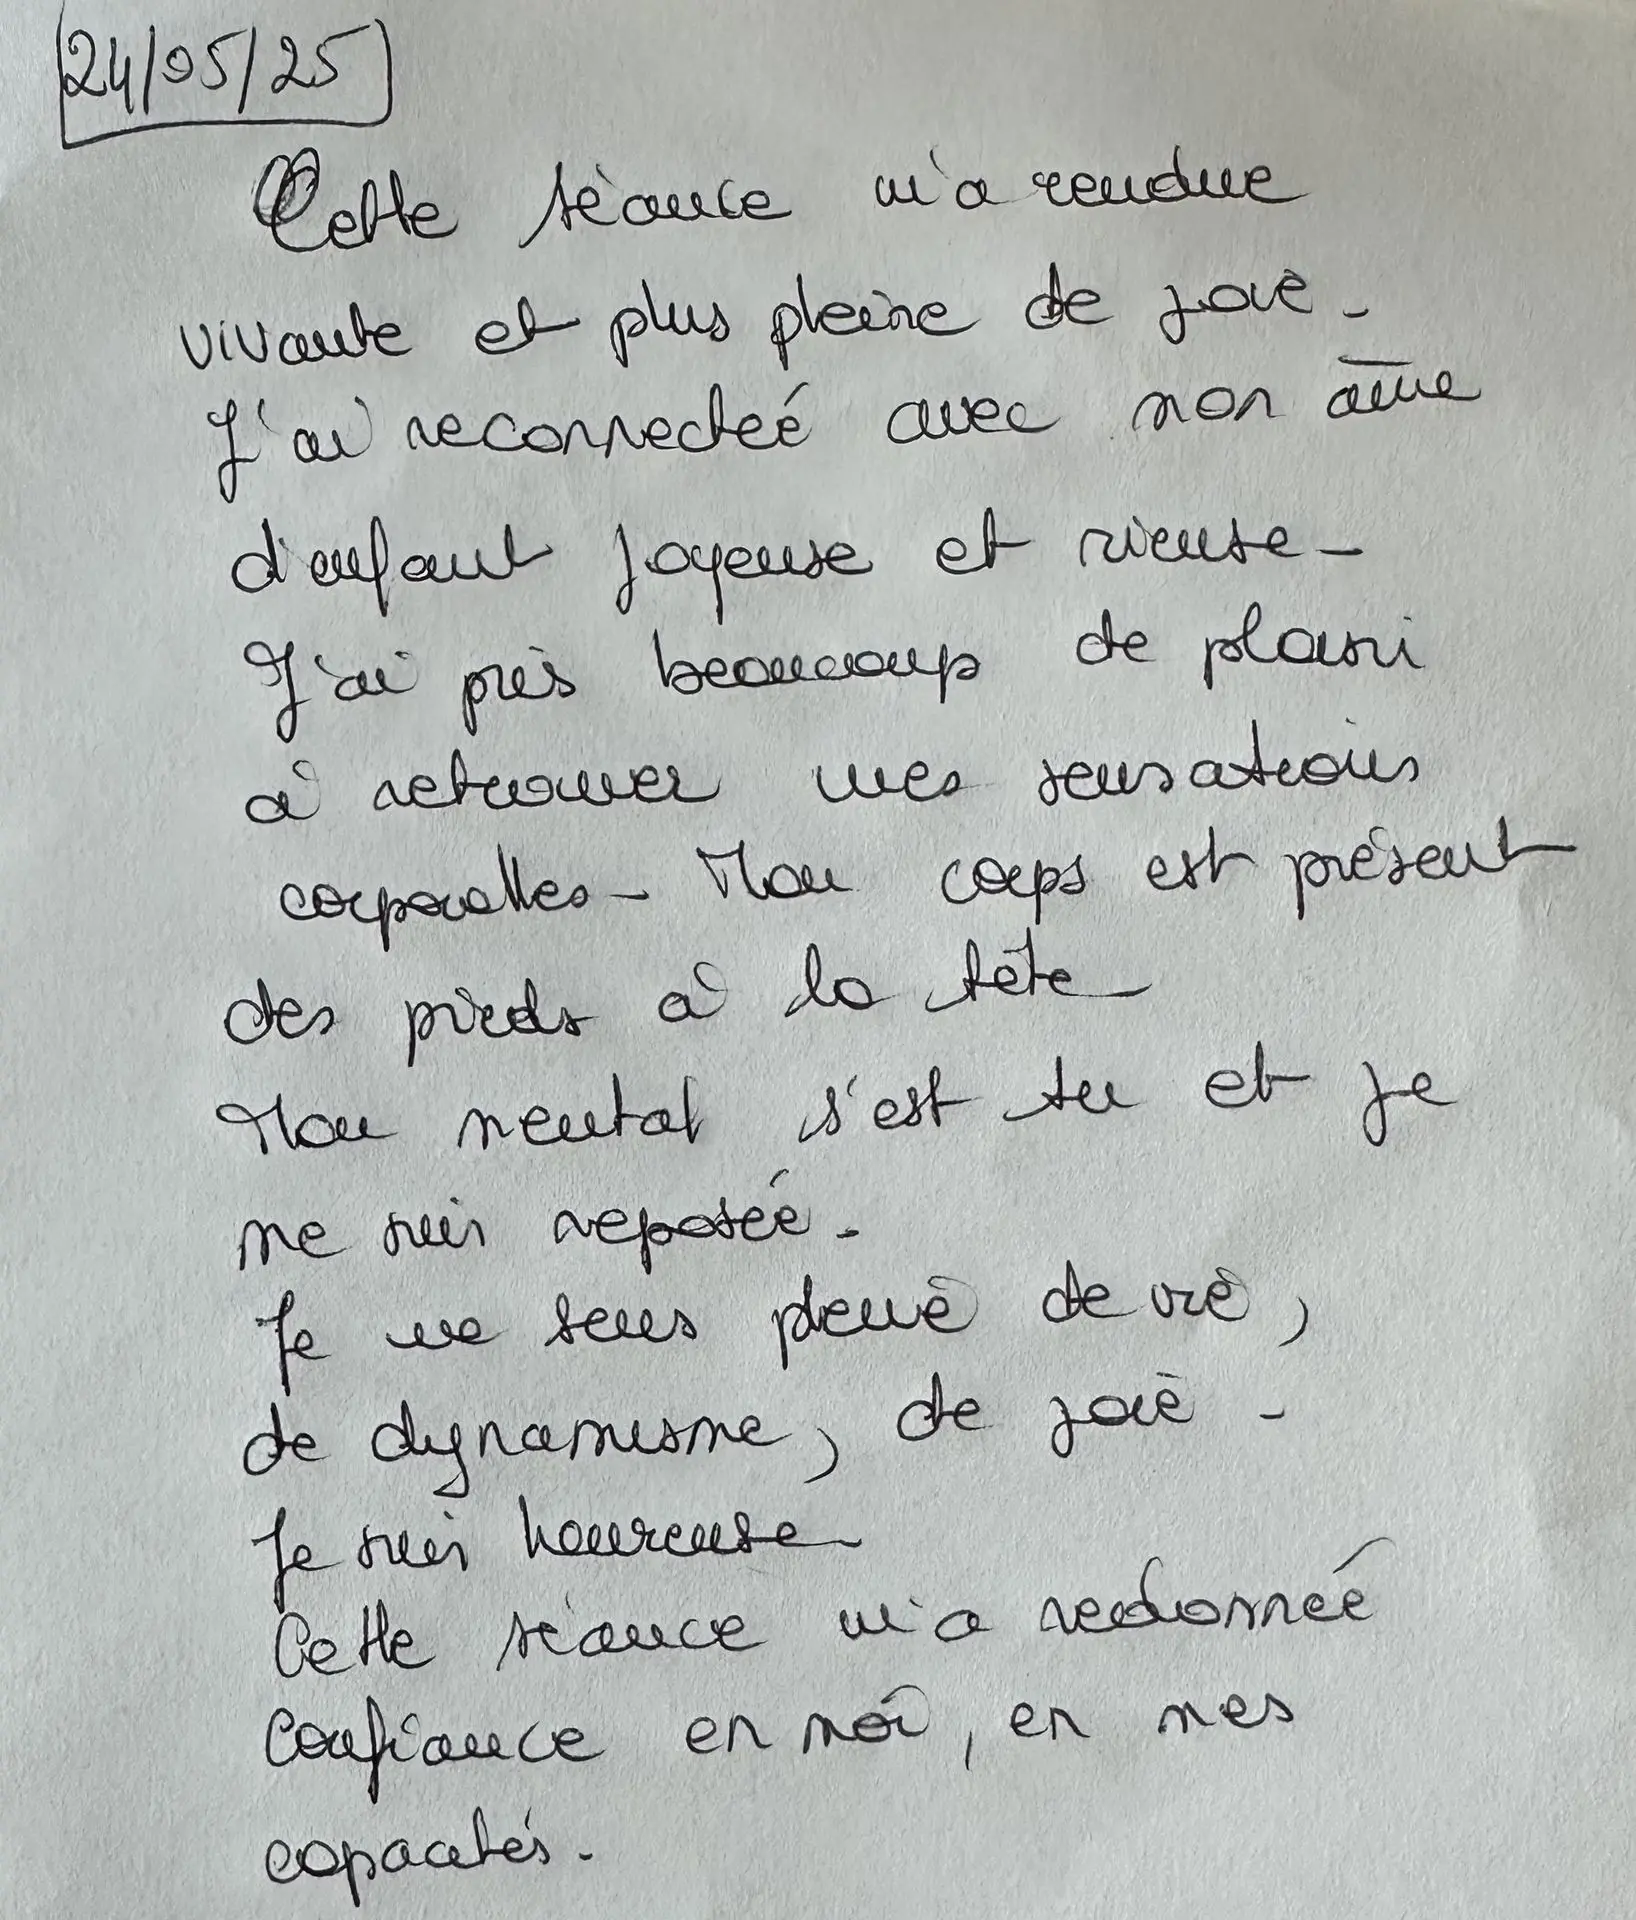 24/05/25
Cette séance m'a rendue
vivante et plus pleine de joie.
J'ai reconnectée avec mon âme
d'enfant joyeuse et rieuse.
J'ai pris beaucoup de plaisir
à retrouver mes sensations
corporelles. Mon corps est présent
des pieds à la tête
Mon mental s'est tu et je
me suis reposée.
Je me sens pleine de vie,
de dynamisme, de joie.
Je suis heureuse.
Cette séance m'a redonnée
confiance en moi, en mes
capacités.